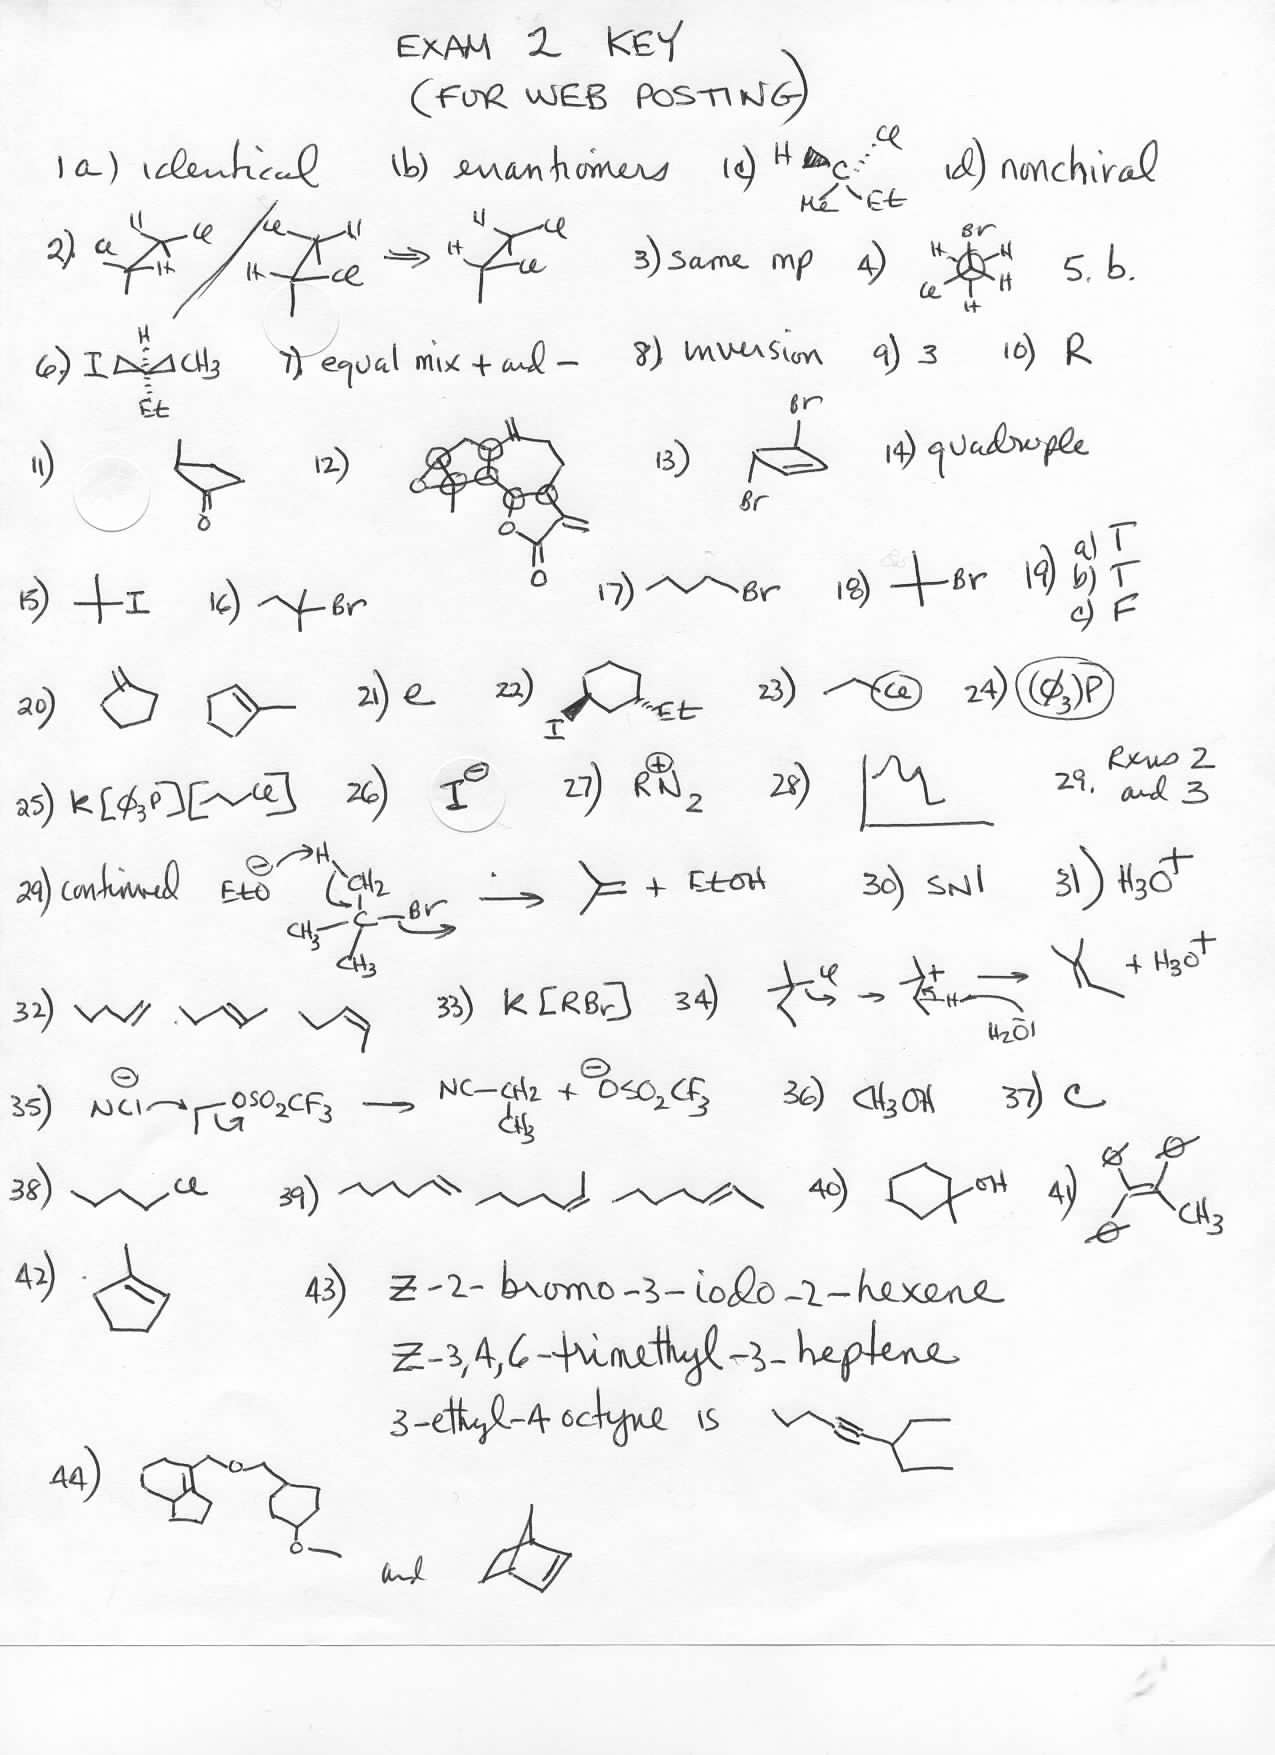 EXAM 2 KEY
(FOR WEB POSTING)
1a) identical 1b) enantiomers 1c) H C Cl Me Et 1d) nonchiral
2) H Cl Cl H / Cl H H Cl ⇒ H Cl H Cl 3) same mp 4) Br H H Cl H H 5. b.
6) I H CH3 Et 7) equal mix + and - 8) inversion 9) 3 10) R
11) O 12) O O O 13) Br Br 14) quadruple
15) I 16) Br 17) Br 18) Br 19) a) T b) T c) F
20) 21) e 22) I Et 23) Cl 24) (ϕ3)P
25) K[ϕ3P][Cl] 26) I⊖ 27) RN2⊕ 28) 29. Rxns 2 and 3
29) continued EtO⊖ H CH2 C Br CH3 CH3 → + EtOH 30) SN1 31) H3O+
32) 33) K[RBr] 34) Cl → + H H2O → + H3O+
35) ⊖ NC OSO2CF3 → NC-CH2 CH3 + ⊖OSO2CF3 36) CH3OH 37) C
38) Cl 39) 40) OH 41) ϕ ϕ ϕ CH3
42) 43) Z-2-bromo-3-iodo-2-hexene
Z-3,4,6-trimethyl-3-heptene
3-ethyl-4 octyne is
44) O O and